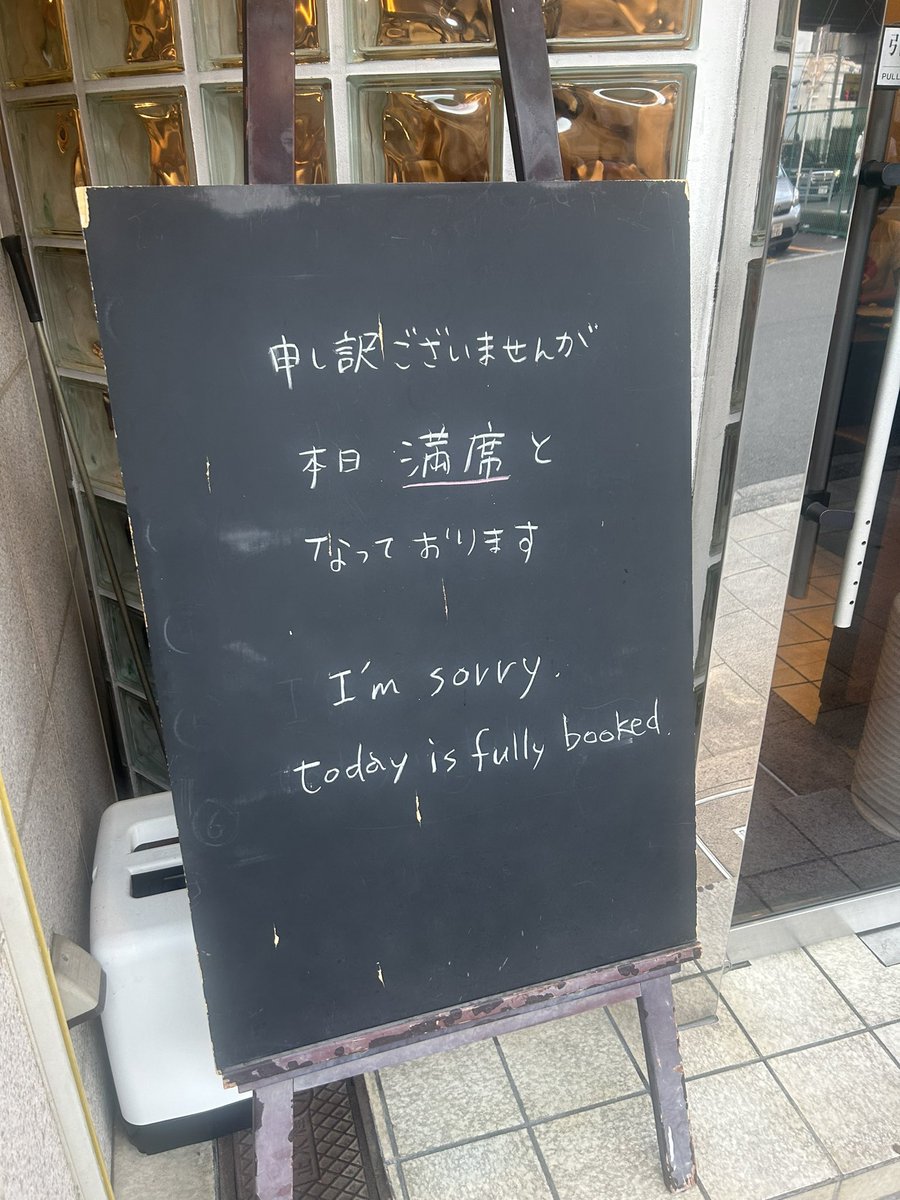 申し訳ございませんが
本日 満席と
なっております
I'm sorry.
today is fully booked.
PULL